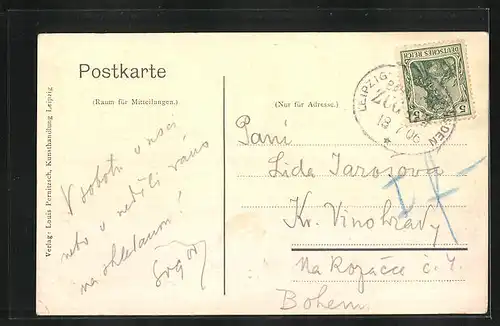 Postkarte
(Raum für Mitteilungen.)
(Nur für Adresse.)
Verlag: Louis Pernitzsch, Kunsthandlung Leipzig
DEUTSCHES REICH
5 5
LEIPZIG-
DEN
13 7 06
V sobotu v noci
nebo v neděli ráno
na shledanou!
Paní
Lida Jarosova
Kr. Vinohrady
Na Kozačce č. 4.
Bohem